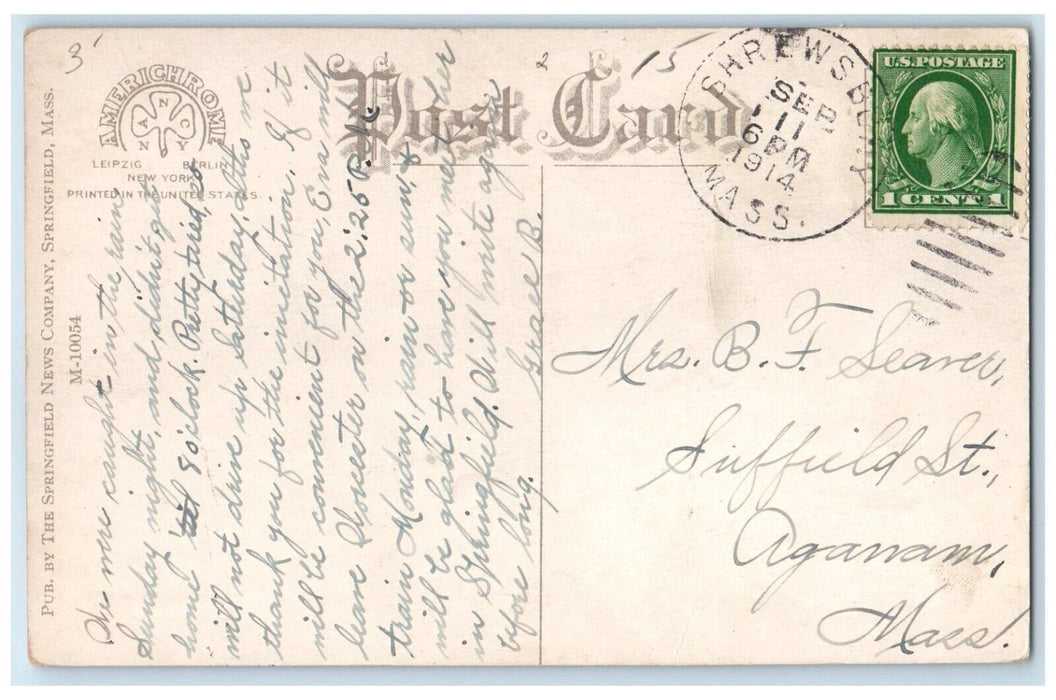 3
AMERICHROME
A N N O N Y
LEIPZIG BERLIN
NEW YORK
PRINTED IN THE UNITED STATES
Post Card
2 15
SHREWSBURY
SEP
11
6 PM
1914
MASS.
U.S. POSTAGE
1 CENT 1
PUB. BY THE SPRINGFIELD NEWS COMPANY, SPRINGFIELD, MASS.
M-10054
We were caught in the rain
Sunday night, and didn't get
home 'til 9 o'clock. Pretty tired, so
will not drive up Saturday. Tho we
thank you for the invitation. If it
will be convenient for you, Eva will
leave Worcester on the 2:25 P.M.
train Monday, rain or sun, &
will be glad to have you meet her
in Springfield. Will write again
before long. Grace B.
Mrs. B. F. Seaver,
Suffield St.,
Agawam,
Mass.